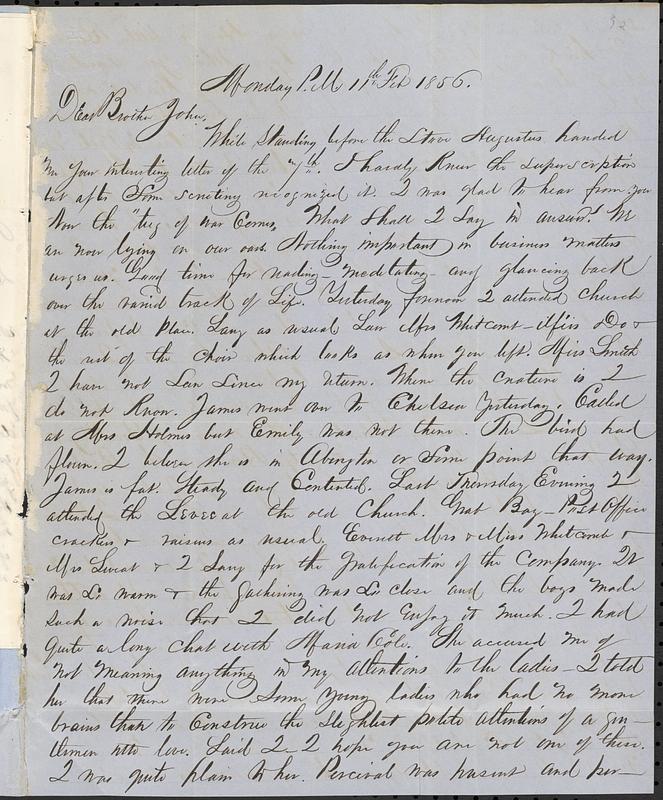 Monday P.M 11th Feb 1856.
Dear Brother John,
While standing before the Stove Augustus handed
me your interesting letter of the "7th". I hardly knew the superscription
but after some scrutiny recognized it. I was glad to hear from you
Now the "tug of war comes, What shall I say in answer? We
are now lying on our oars. Nothing important in business matters
urges us. Good time for reading - meditating - and glancing back
over the rapid track of Life. Yesterday forenoon I attended church
at the old place. Sang as usual Saw Mrs Whitcomb - Miss Do &
the rest of the choir which looks as when you left. Miss Smith
I have not seen since my return. Where the creature is I
do not know. James went over to Chelsea yesterday. Called
at Mrs Holmes but Emily was not there. The bird had
flown. I believe she is in Abington or some point that way.
James is fat. Steady and Contented. Last Thursday Evening I
attended the Levee at the old Church. Grab Bag - Post Office
crackers & raisins as usual. Everett Mrs & Miss Whitcomb &
Mrs & I sang for the gratification of the company. It
was so warm & the gathering was so close and the boys made
such a noise that I did not enjoy it much. I had
quite a long chat with Maria Cole. She accused me of
not meaning anything in my attentions to the ladies - I told
her that there were some young ladies who had no more
brains than to construe the slightest polite attentions of a gen-
tlemen into love. Said I - I hope you are not one of these.
I was quite plain to her. Percival was present and per-